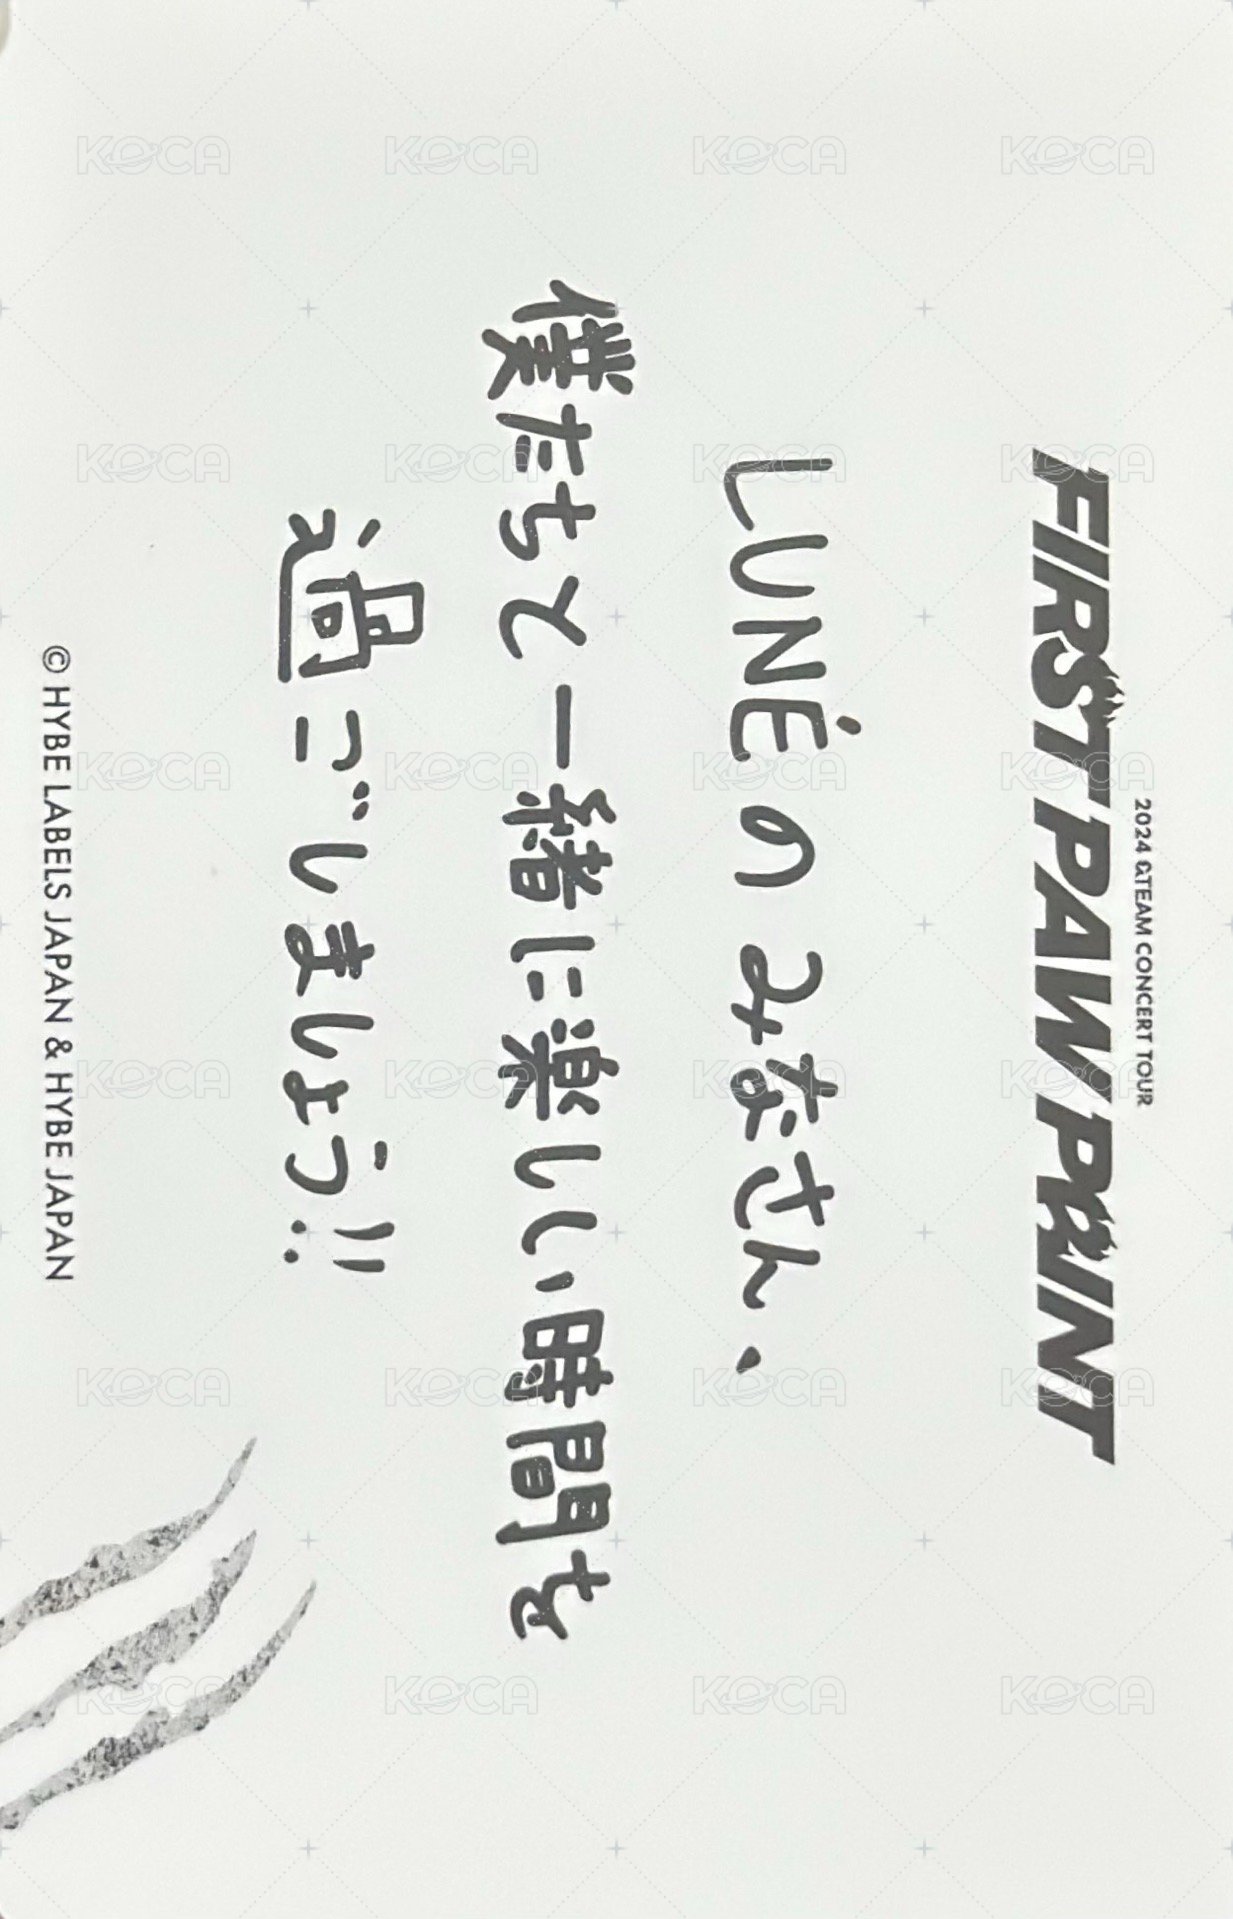 2024 &TEAM CONCERT TOUR
FIRST PAW PRINT
LUNÉのみなさん、
僕たちと一緒に楽しい時間を
過ごしましょう!!
© HYBE LABELS JAPAN & HYBE JAPAN
KOCA KOCA KOCA KOCA
KOCA KOCA KOCA KOCA
KOCA KOCA KOCA KOCA
KOCA KOCA KOCA KOCA
KOCA KOCA KOCA KOCA
KOCA KOCA KOCA KOCA